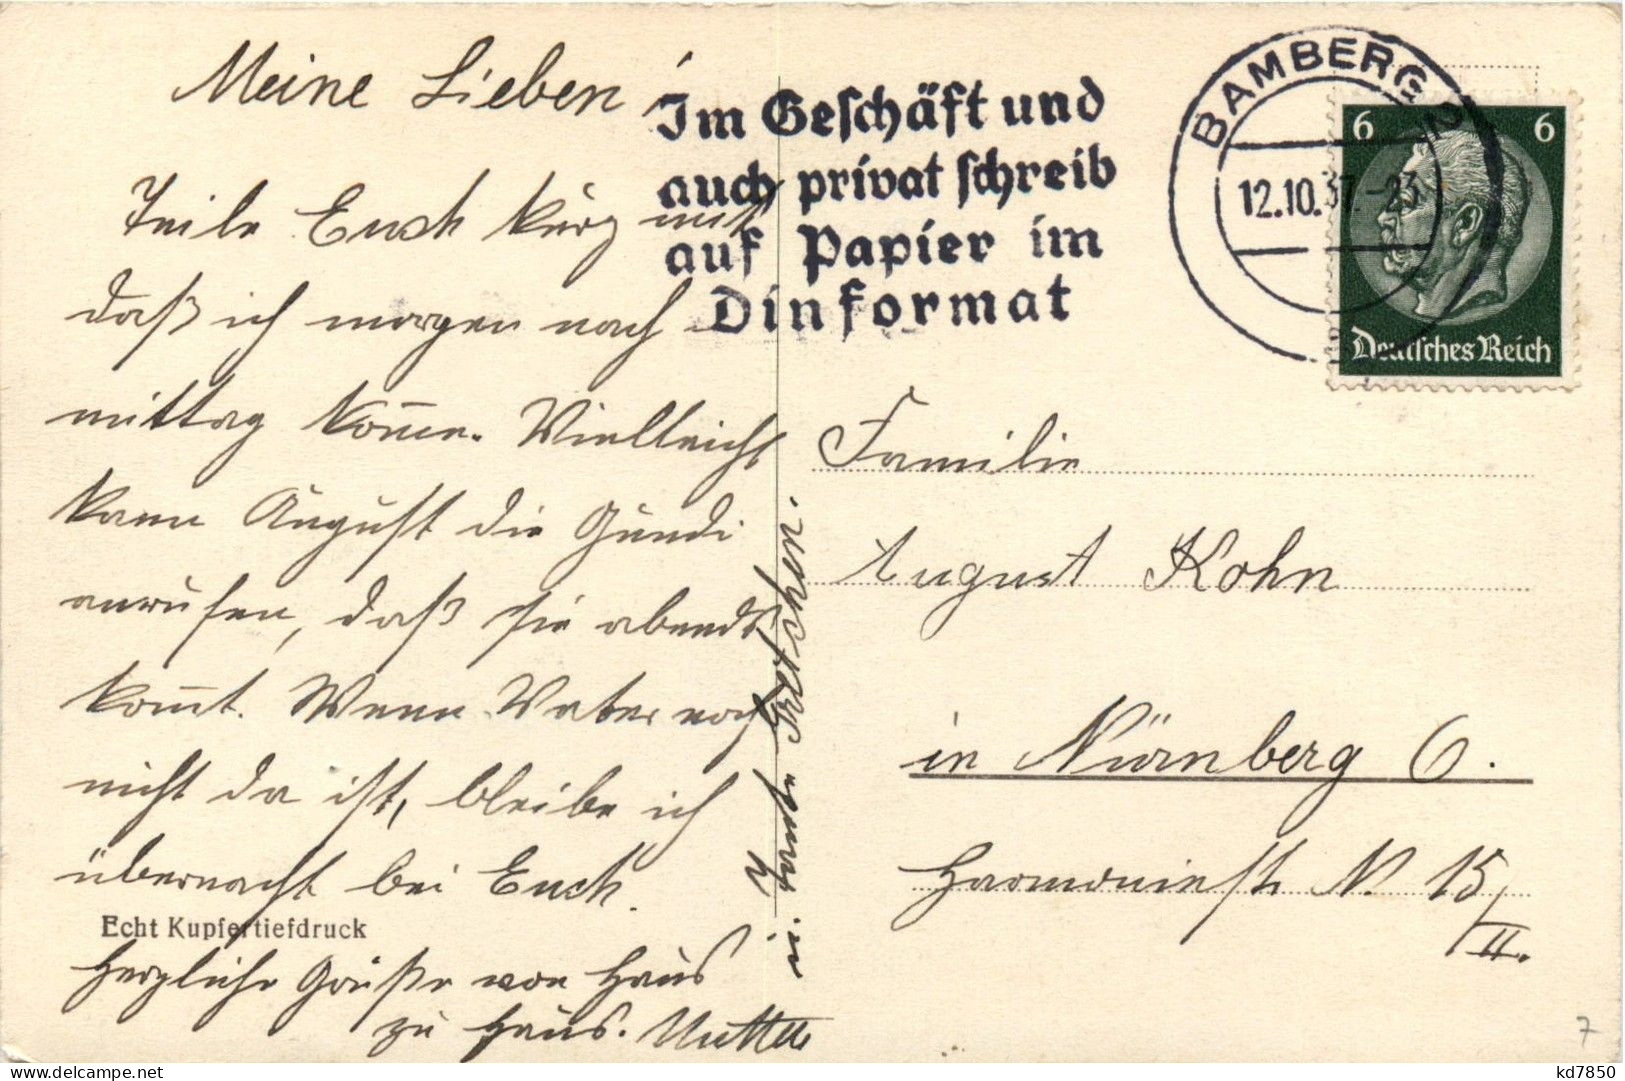 Meine Lieben!
Teile Euch kurz mit
daß ich morgen nach
mittag komme. Vielleicht
kann August die Gundi
anrufen, daß sie abends
kommt. Wenn Vater noch
nicht da ist, bleibe ich
übernacht bei Euch.
Echt Kupfertiefdruck
Herzliche Grüße von Haus
zu Haus. Mutter
Im Geschäft und
auch privat schreib
auf Papier im
Dinformat
BAMBERG 2
12.10.37.-23
6 6
Deutsches Reich
Familie
August Kohn
in Nürnberg O.
Harmoniestr N. 15/
II.
7
kd7850